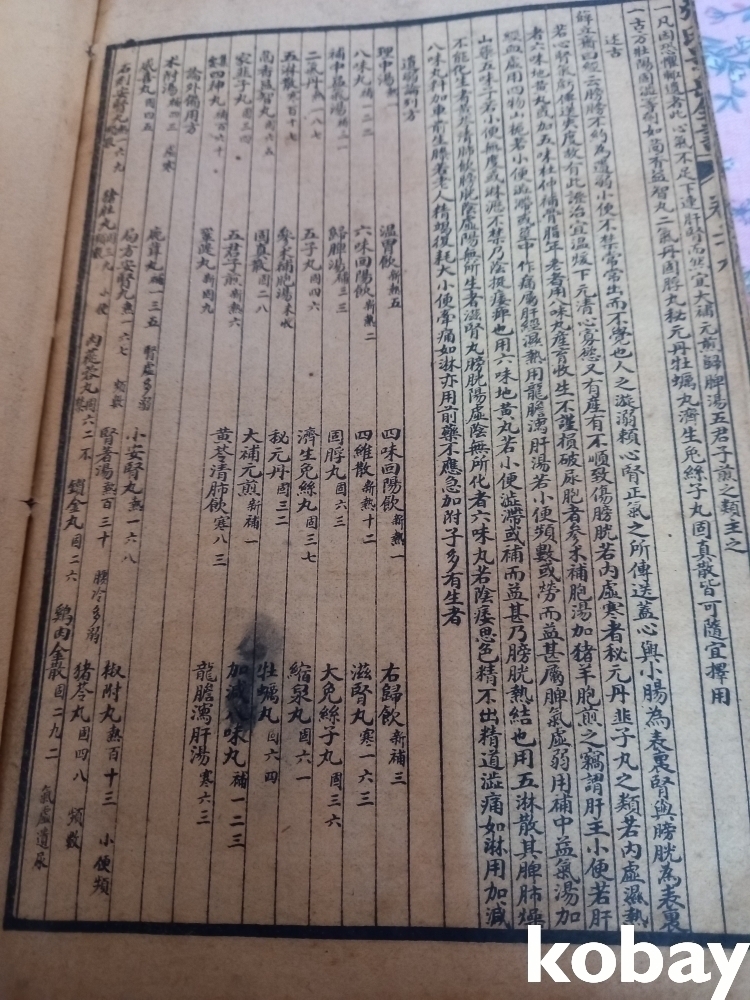 一凡因恐懼輒遺者此心氣不足下連肝腎而然宜大補元煎歸脾湯五君子煎之類主之
一古方壯陽固澁等劑如茴香益智丸二氣丹固脬丸秘元丹牡蠣丸濟生兔絲子丸固真散皆可隨宜擇用
述古
薛立齋曰經云膀胱不約為遺溺小便不禁常常出而不覺也人之漩溺賴心腎正氣之所傳送蓋心與小腸為表裏腎與膀胱為表裏
若心腎氣虧傳送失度故有此證治宜溫煖下元清心寡慾又有產育不順致傷膀胱若內虛寒者秘元丹韭子丸之類若內虛濕熱
者六味地黃丸或加五味杜仲補骨脂年老者用八味丸產育收生不謹損破尿胞者參朮補胞湯加猪羊胞煎之竊謂肝主小便若肝
經血虛用四物山梔若小便澁滯或莖中作痛屬肝經濕熱用龍膽瀉肝湯若小便頻數或勞而益甚屬脾氣虛弱用補中益氣湯加
山藥五味子若小便無度或淋瀝不禁乃陰挺痿痺也用六味地黃丸若小便澁滯或補而益甚乃膀胱熱結也用五淋散其脾肺燥
不能化生者黃芩清肺飲膀胱陰虛陽無所生者滋腎丸膀胱陽虛陰無所化者六味丸若陰痿思色精不出精道澁痛如淋用加減
八味丸料加車前牛膝若老人精竭復耗大小便牽痛如淋亦用前藥不應急加附子多有生者
遺溺論列方
理中湯熱一 溫胃飲新熱五 四味回陽飲新熱一 右歸飲新補三
八味丸補一二一 六味回陽飲新熱二 四維散新熱十二 滋腎丸寒一六三
補中益氣湯補三一 歸脾湯補三二 固脬丸固六三 大兔絲子丸固三六
二氣丹熱一八七 五子丸固四六 濟生兔絲丸固三七 縮泉丸固六一
五淋散寒百十七 參朮補胞湯 秘元丹固三二 牡蠣丸固六四
茴香益智丸固六五 固真散固二八 大補元煎新補一 加減八味丸補一二三
家韭子丸固三四 五君子煎新熱六 黃芩清肺飲寒八三 龍膽瀉肝湯寒六三
四神丸 鞏隄丸新固九
論外備用方
朮附湯補四三 虛寒 鹿茸丸補一三五 腎虛多溺 小安腎丸熱一六八 椒附丸熱百十三 小便頻
威喜丸固四五 局方安腎丸熱一六七 頻數 腎著湯熱百三十 腰冷多溺 猪苓丸固四八 頻數
安腎丸熱一六九 肉蓯蓉丸固六二 鎖金丸固二六 鷄肉金散固二九二 氣虛遺尿